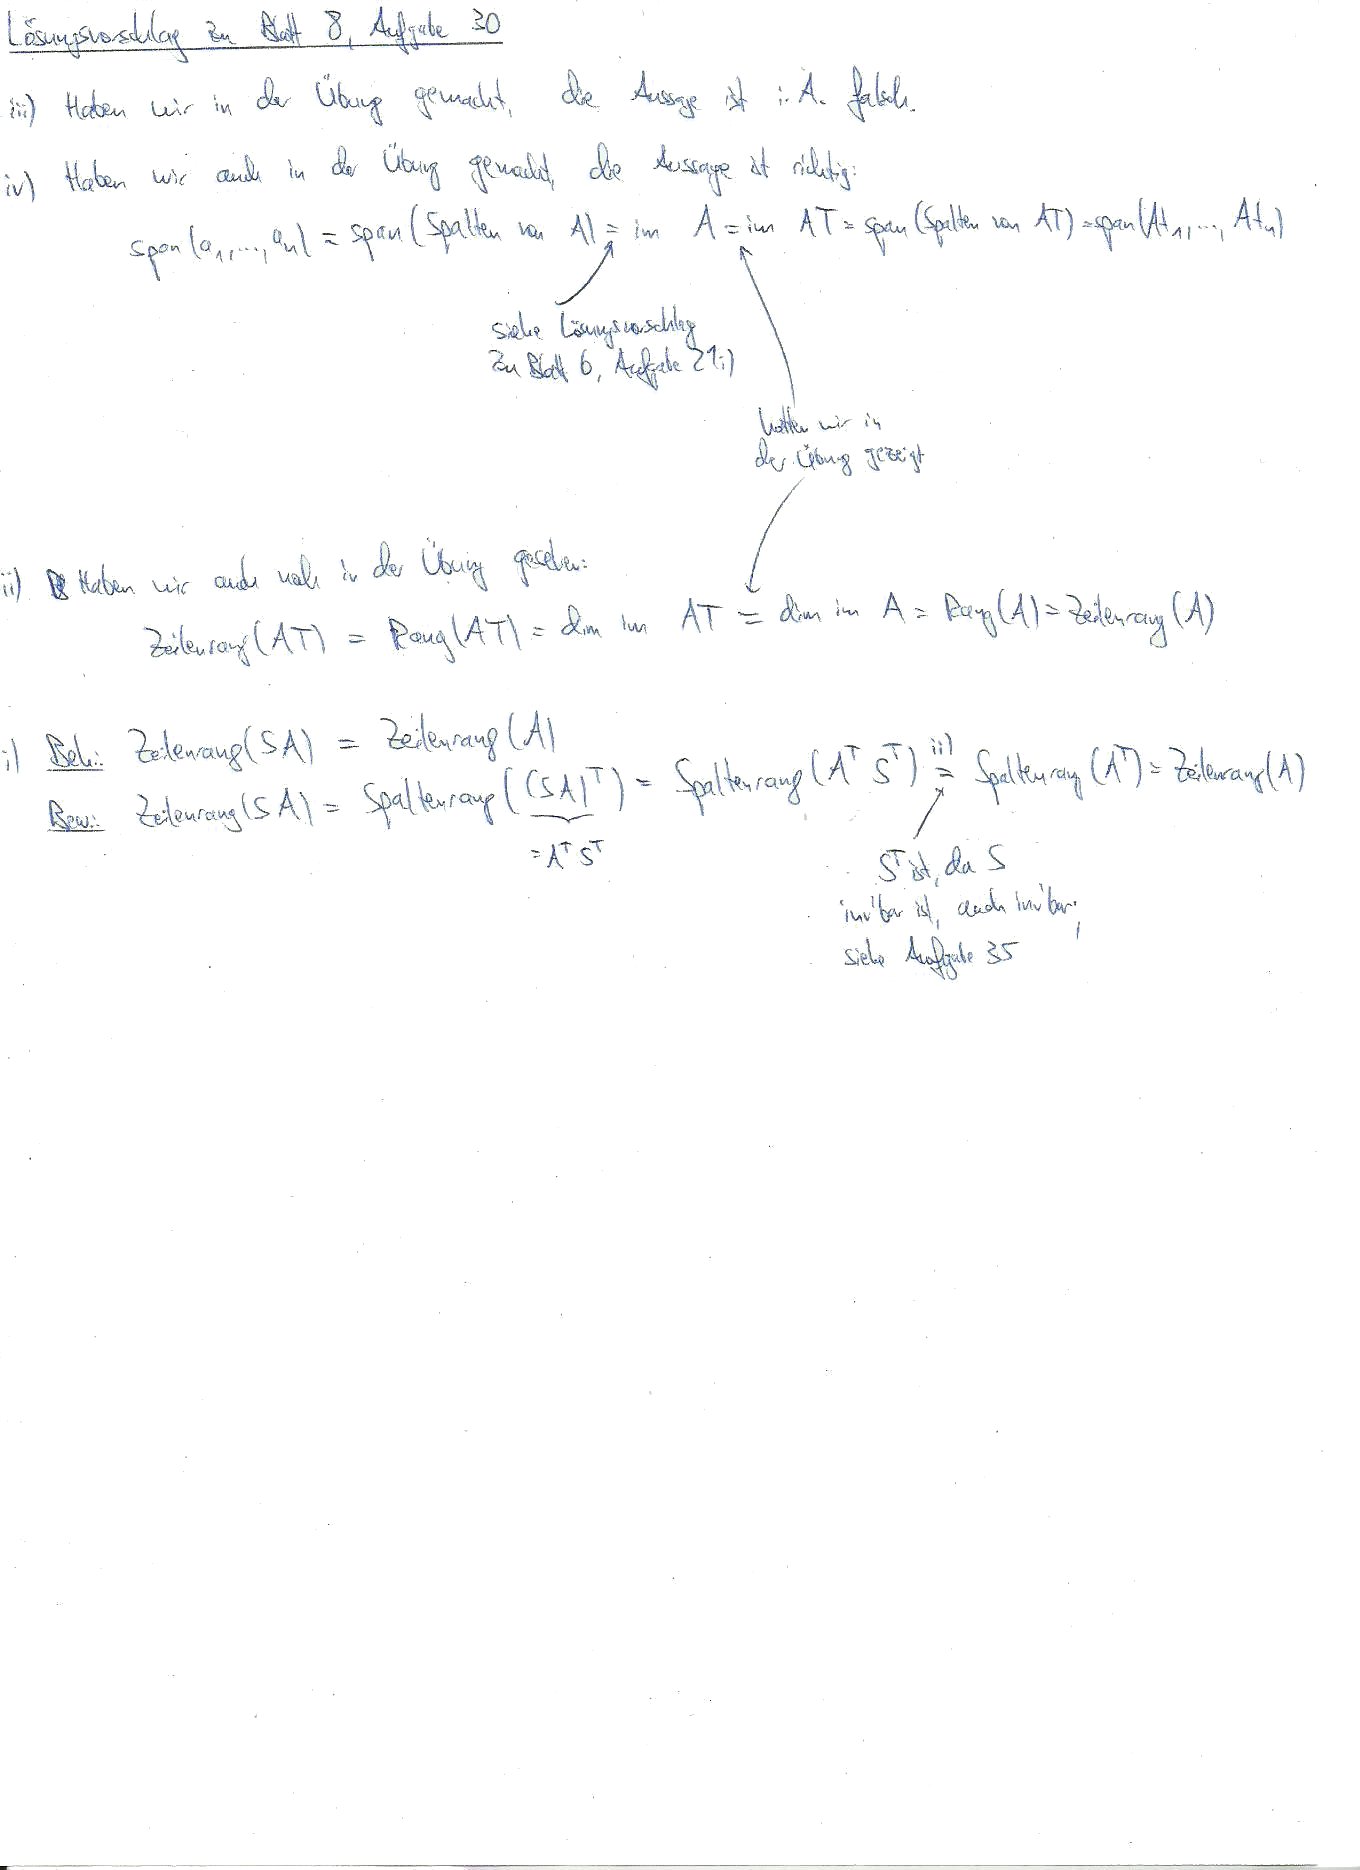 Lösungsvorschlag zu Blatt 8, Aufgabe 30
iii) Haben wir in der Übung gemacht, die Aussage ist i. A. falsch.
iv) Haben wir auch in der Übung gemacht, die Aussage ist richtig:
span(a₁,...,aₙ) = span(Spalten von A) = im A = im AT = span(Spalten von AT) = span(At₁,..., Atₙ)
siehe Lösungsvorschlag
zu Blatt 6, Aufgabe 21i)
hatten wir in
der Übung gezeigt
ii) Haben wir auch noch in der Übung gesehen:
Zeilenrang(AT) = Rang(AT) = dim im AT = dim im A = Rang(A) = Zeilenrang(A)
i) Beh.: Zeilenrang(SA) = Zeilenrang(A)
Bew.: Zeilenrang(SA) = Spaltenrang((SA)ᵀ) = Spaltenrang(Aᵀ Sᵀ) ii) = Spaltenrang(Aᵀ) = Zeilenrang(A)
= Aᵀ Sᵀ
Sᵀ ist, da S
inv'bar ist, auch inv'bar,
siehe Aufgabe 35